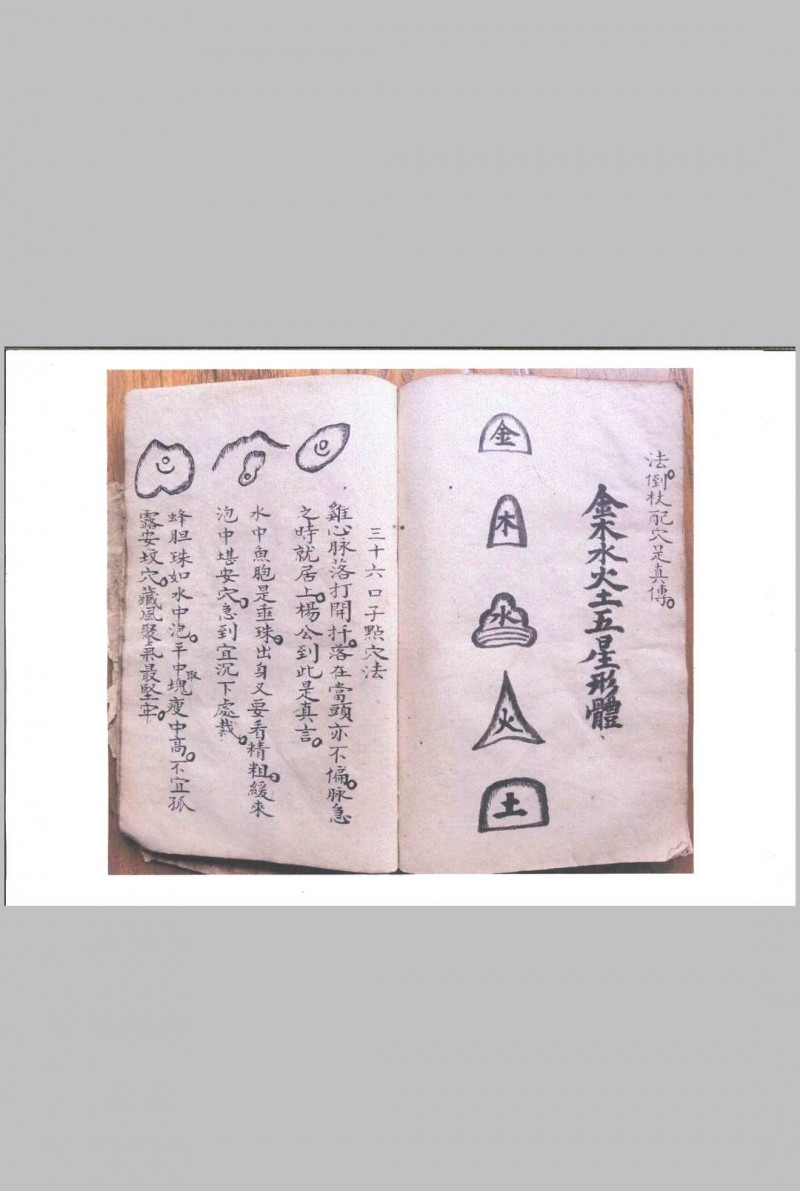 法。倒杖配穴是真傳。
金木水火土五星形體
金
木
水
火
土
三十六口子點穴法
雞心脉落打開扦。落在當頭亦不偏。脉急
之時就居上。楊公到此是真言。
水中魚胞是垂珠。出身又要看精粗。緩來
泡中堪安穴。急到宜沉下處裁。
蜂胆珠如水中泡。平中取塊瘦中高。不宜孤
露安坟穴。藏風聚氣最堅牢。